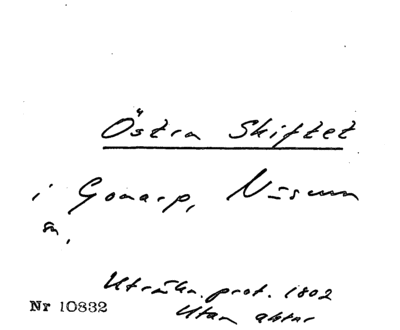 Östra Skiftet
i Gonarp, Näsum
sn,
Uträkn. prot. 1802
Utan aktnr
Nr 10832